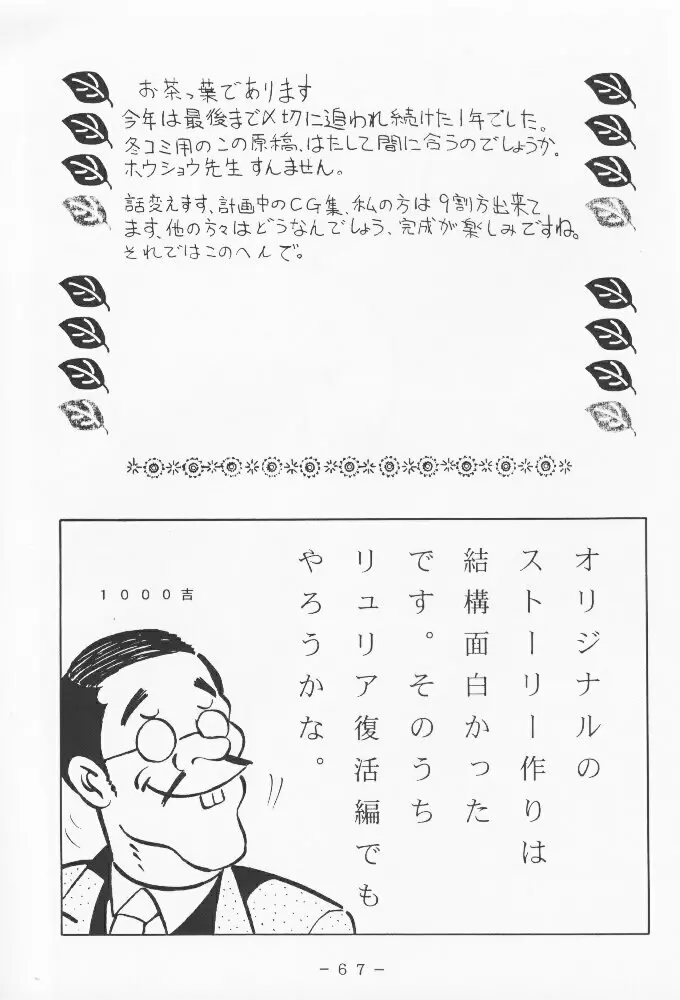 お茶っ葉であります
今年は最後まで〆切に追われ続けた1年でした。
冬コミ用のこの原稿、はたして間に合うのでしょうか。
ホウショウ先生すんません。
話変えますす、計画中のCG集、私の方は9割方出来て
ます、他の方々はどうなんでしょう、完成が楽しみですね。
それではこのへんで。
オリジナルの
ストーリー作りは
結構面白かった
です。そのうち
リュリア復活編でも
やろうかな。
1000吉
-67-